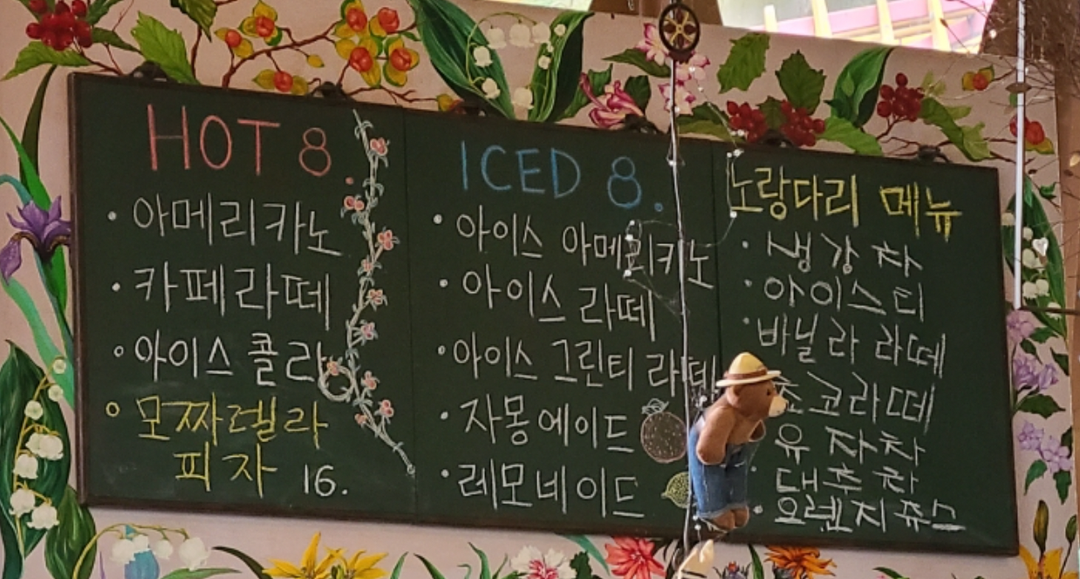 HOT 8.
• 아메리카노
• 카페라떼
• 아이스 콜라
• 모짜렐라
피자 16.
ICED 8.
• 아이스 아메리카노
• 아이스 라떼
• 아이스 그린티 라떼
• 자몽에이드
• 레모네이드
노랑다리 메뉴
• 생강차
• 아이스티
• 바닐라 라떼
초코라떼
유자차
대추차
• 오렌지쥬스